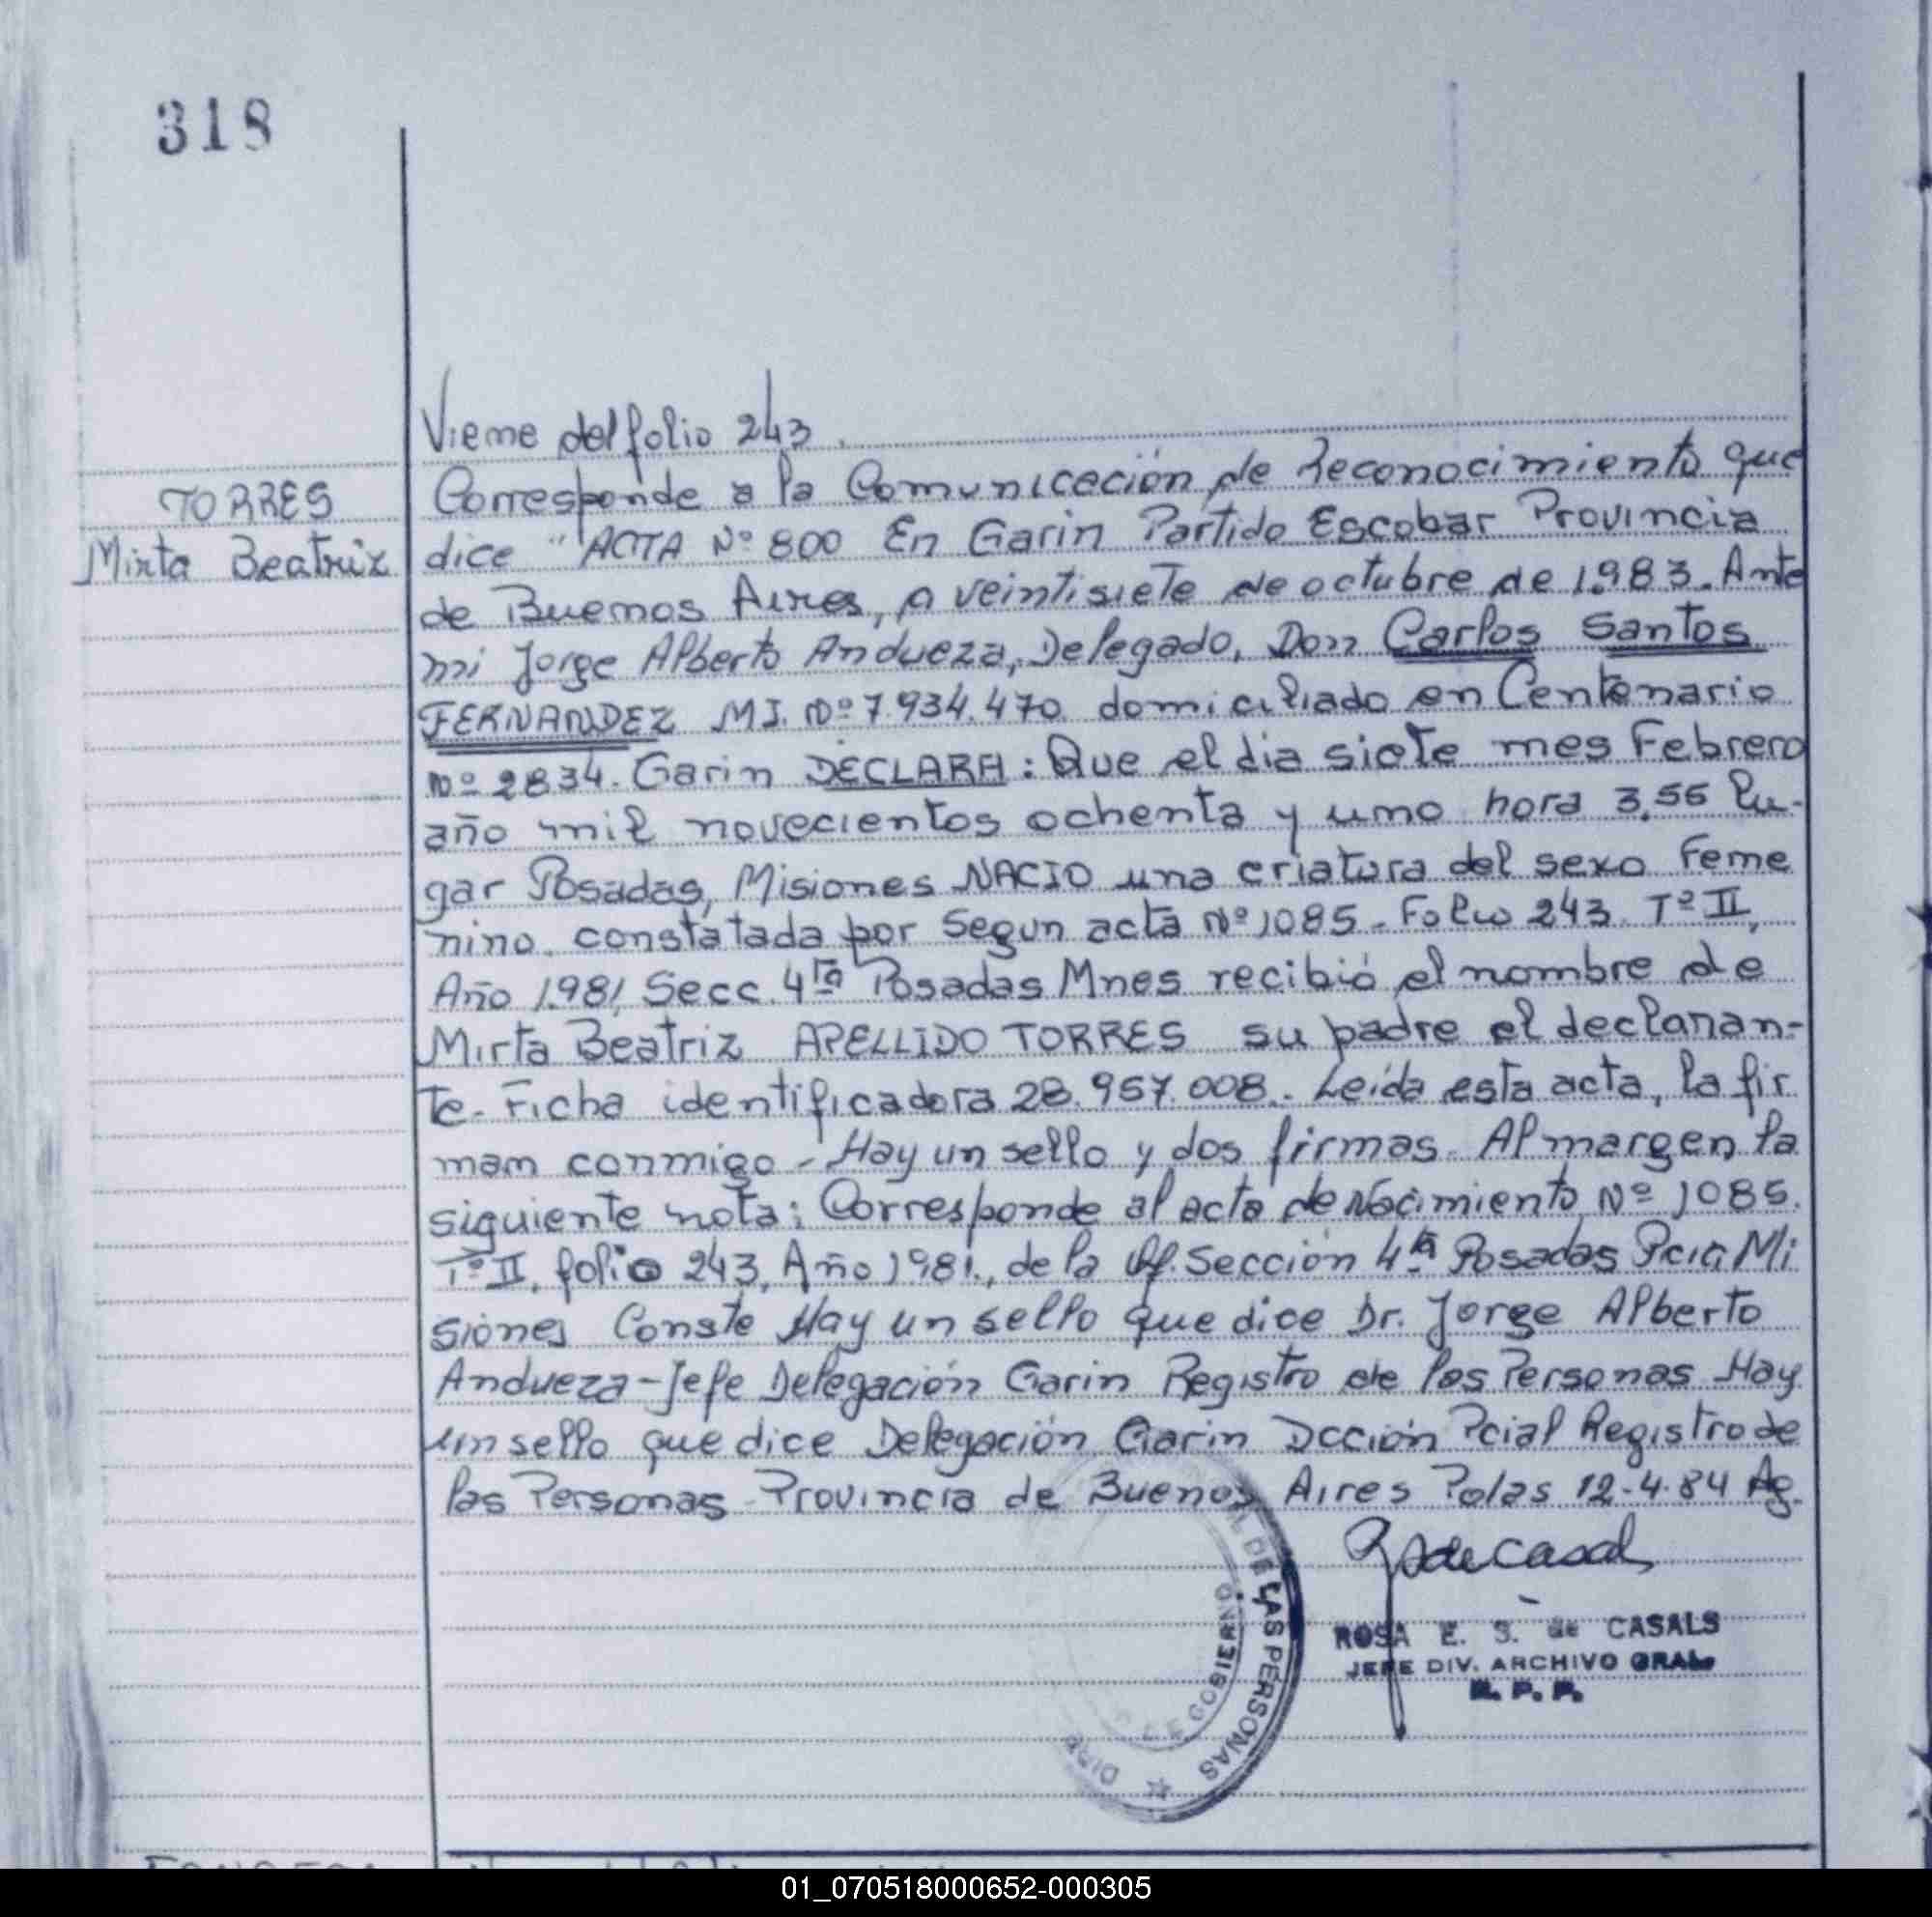 318
Viene del folio 243.
TORRES
Mirta Beatriz
Corresponde a la Comunicación de Reconocimiento que
dice "ACTA Nº 800 En Garin Partido Escobar Provincia
de Buenos Aires, a veintisiete de octubre de 1983. Ante
mi Jorge Alberto Andueza, Delegado, Don Carlos Santos
FERNANDEZ MI. Nº 7.934.470 domiciliado en Centenario
Nº 2834. Garin DECLARA: Que el dia siete mes Febrero
año mil novecientos ochenta y uno hora 3.55 lu-
gar Posadas, Misiones NACIO una criatura del sexo Feme
nino. constatada por Segun acta Nº 1085 - Folio 243 Tº II,
Año 1981, Secc. 4ta Posadas Mnes recibió el nombre de
Mirta Beatriz APELLIDO TORRES su padre el declaran-
te - Ficha identificadora 28.957.008.- Leida esta acta, la fir
man conmigo - Hay un sello y dos firmas. Al margen la
siguiente nota: Corresponde al acta de Nacimiento Nº 1085.
Tº II, folio 243, Año 1981., de la Of. Sección 4ta Posadas Pcia Mi
siones Conste Hay un sello que dice Dr. Jorge Alberto
Andueza - Jefe Delegación Garin Registro de las Personas Hay
un sello que dice Delegación Garin Dcción Pcial Registro de
las Personas - Provincia de Buenos Aires Pdas 12-4-84 Ag.
ROSA E. S. de CASALS
JEFE DIV. ARCHIVO GRAL.
R. P. P.
DE LAS PERSONAS
DE GOBIERNO
01_070518000652-000305